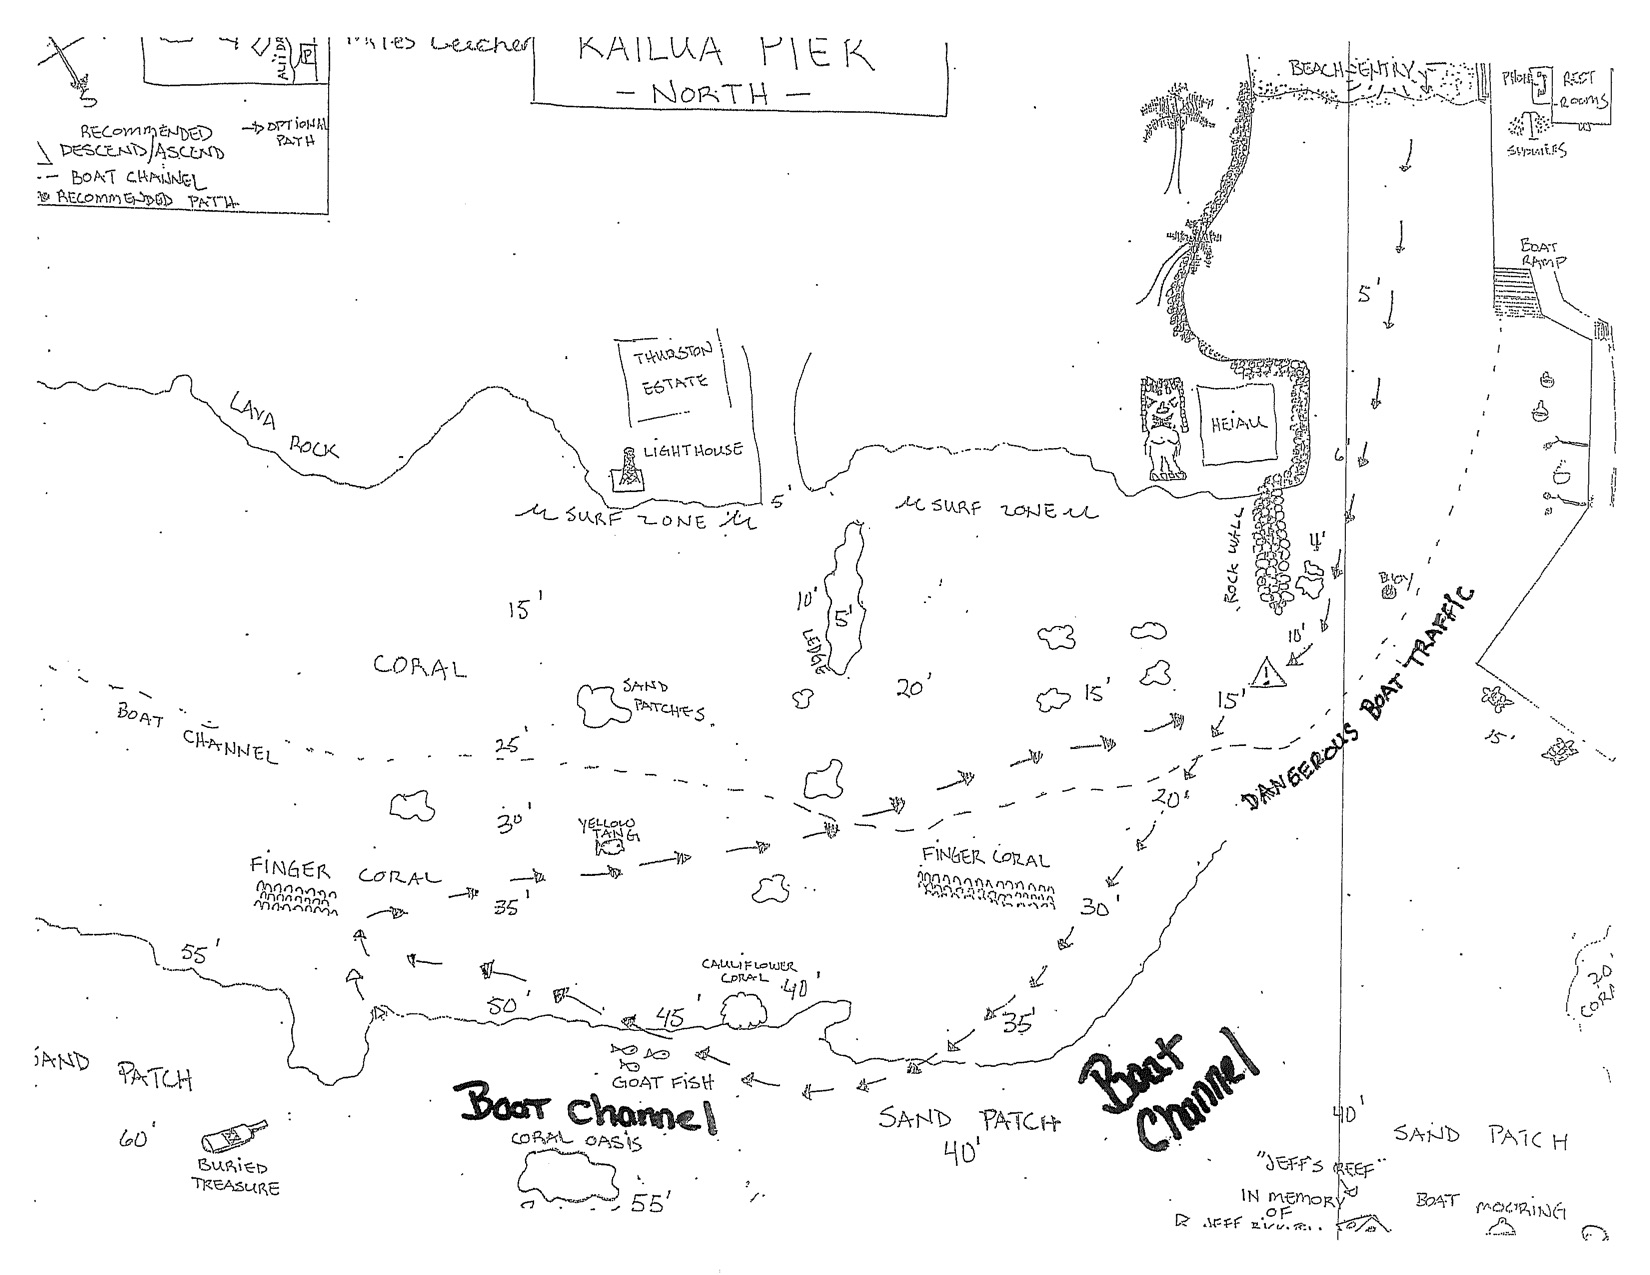 KAILUA PIER
- NORTH -
ALII DR
P
S
RECOMMENDED
DESCEND/ASCEND
-- BOAT CHANNEL
RECOMMENDED PATH
OPTIONAL
PATH
BEACH ENTRY
PHONE
REST
ROOMS
SHOWERS
BOAT
RAMP
5'
THURSTON
ESTATE
LIGHTHOUSE
LAVA
ROCK
HEIAU
6'
5'
SURF ZONE
SURF ZONE
ROCK WALL
4'
BUOY
15'
10'
5'
LEDGE
10'
DANGEROUS BOAT TRAFFIC
CORAL
SAND
PATCHES
20'
15'
15'
15'
BOAT
CHANNEL
25'
20'
30'
YELLOW
TANG
FINGER CORAL
FINGER CORAL
35'
30'
55'
CAULIFLOWER
CORAL
40'
50'
45'
35'
20'
SAND PATCH
GOAT FISH
Boat Channel
Boat
Channel
SAND PATCH
40'
40'
SAND PATCH
60'
BURIED
TREASURE
CORAL OASIS
55'
"JEFF'S REEF"
IN MEMORY
OF
JEFF
BOAT MOORING